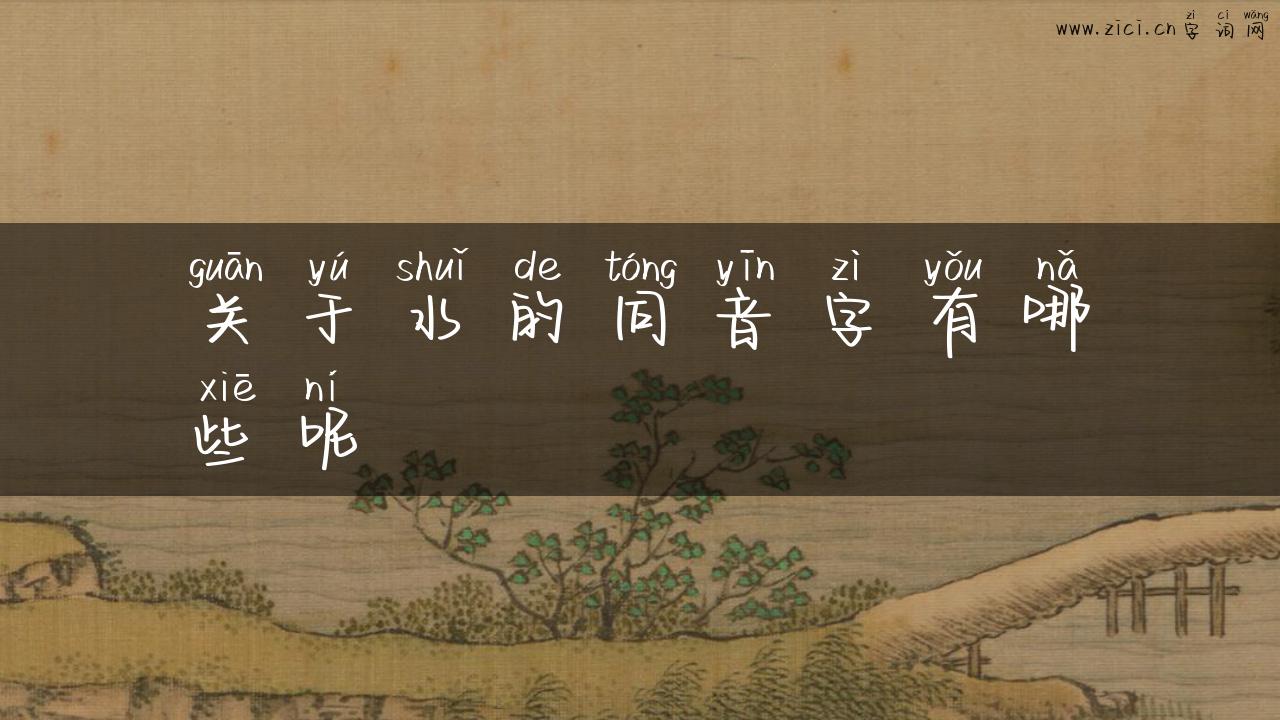 zì cí wǎng
www.zici.cn 字词网
guān yú shuǐ de tóng yīn zì yǒu nǎ
关于水的同音字有哪
xiē ní
些呢